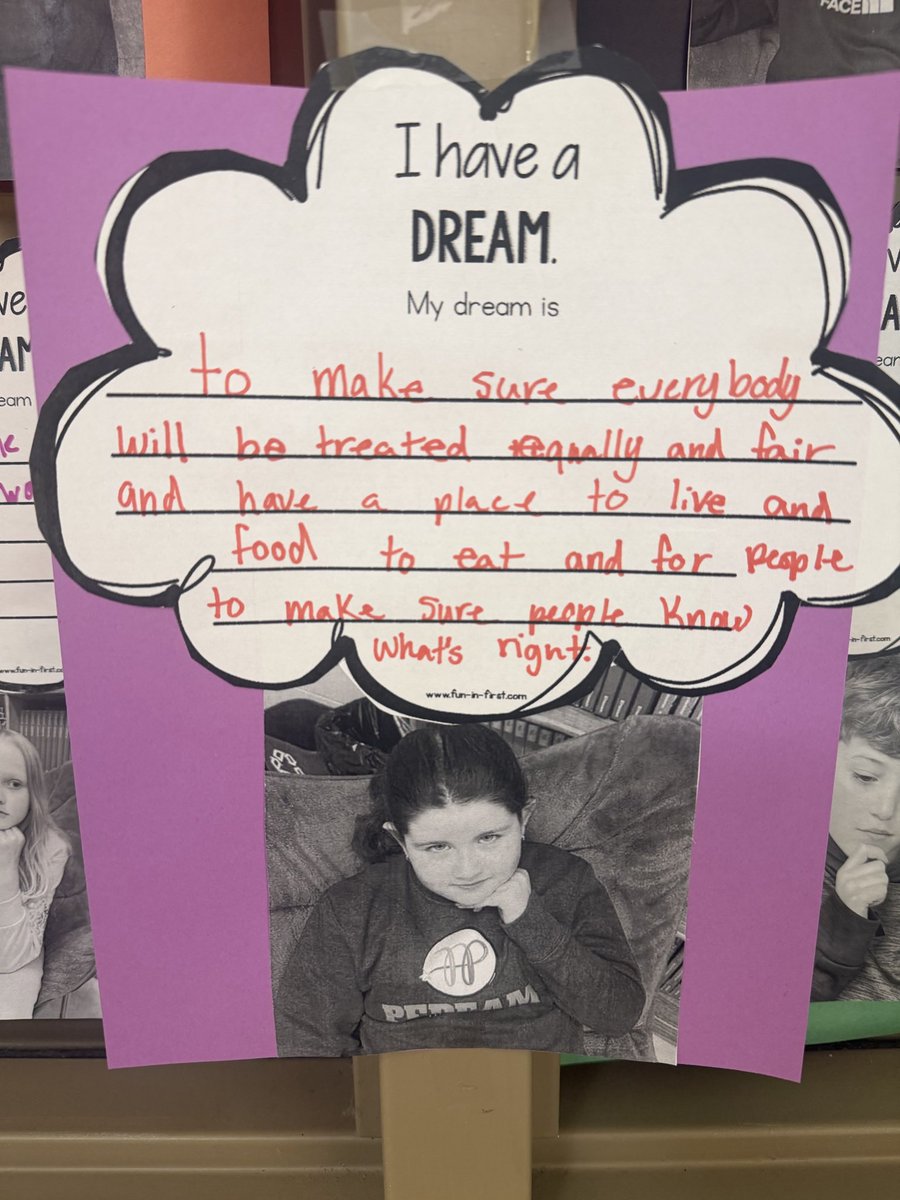 FACE
I have a
DREAM.
My dream is
to make sure everybody
will be treated equally and fair
and have a place to live and
food to eat and for people
to make sure people know
what's right.
www.fun-in-first.com
ve
AM
eam
www.fun-in-first.com
A
ean
-in-first.com